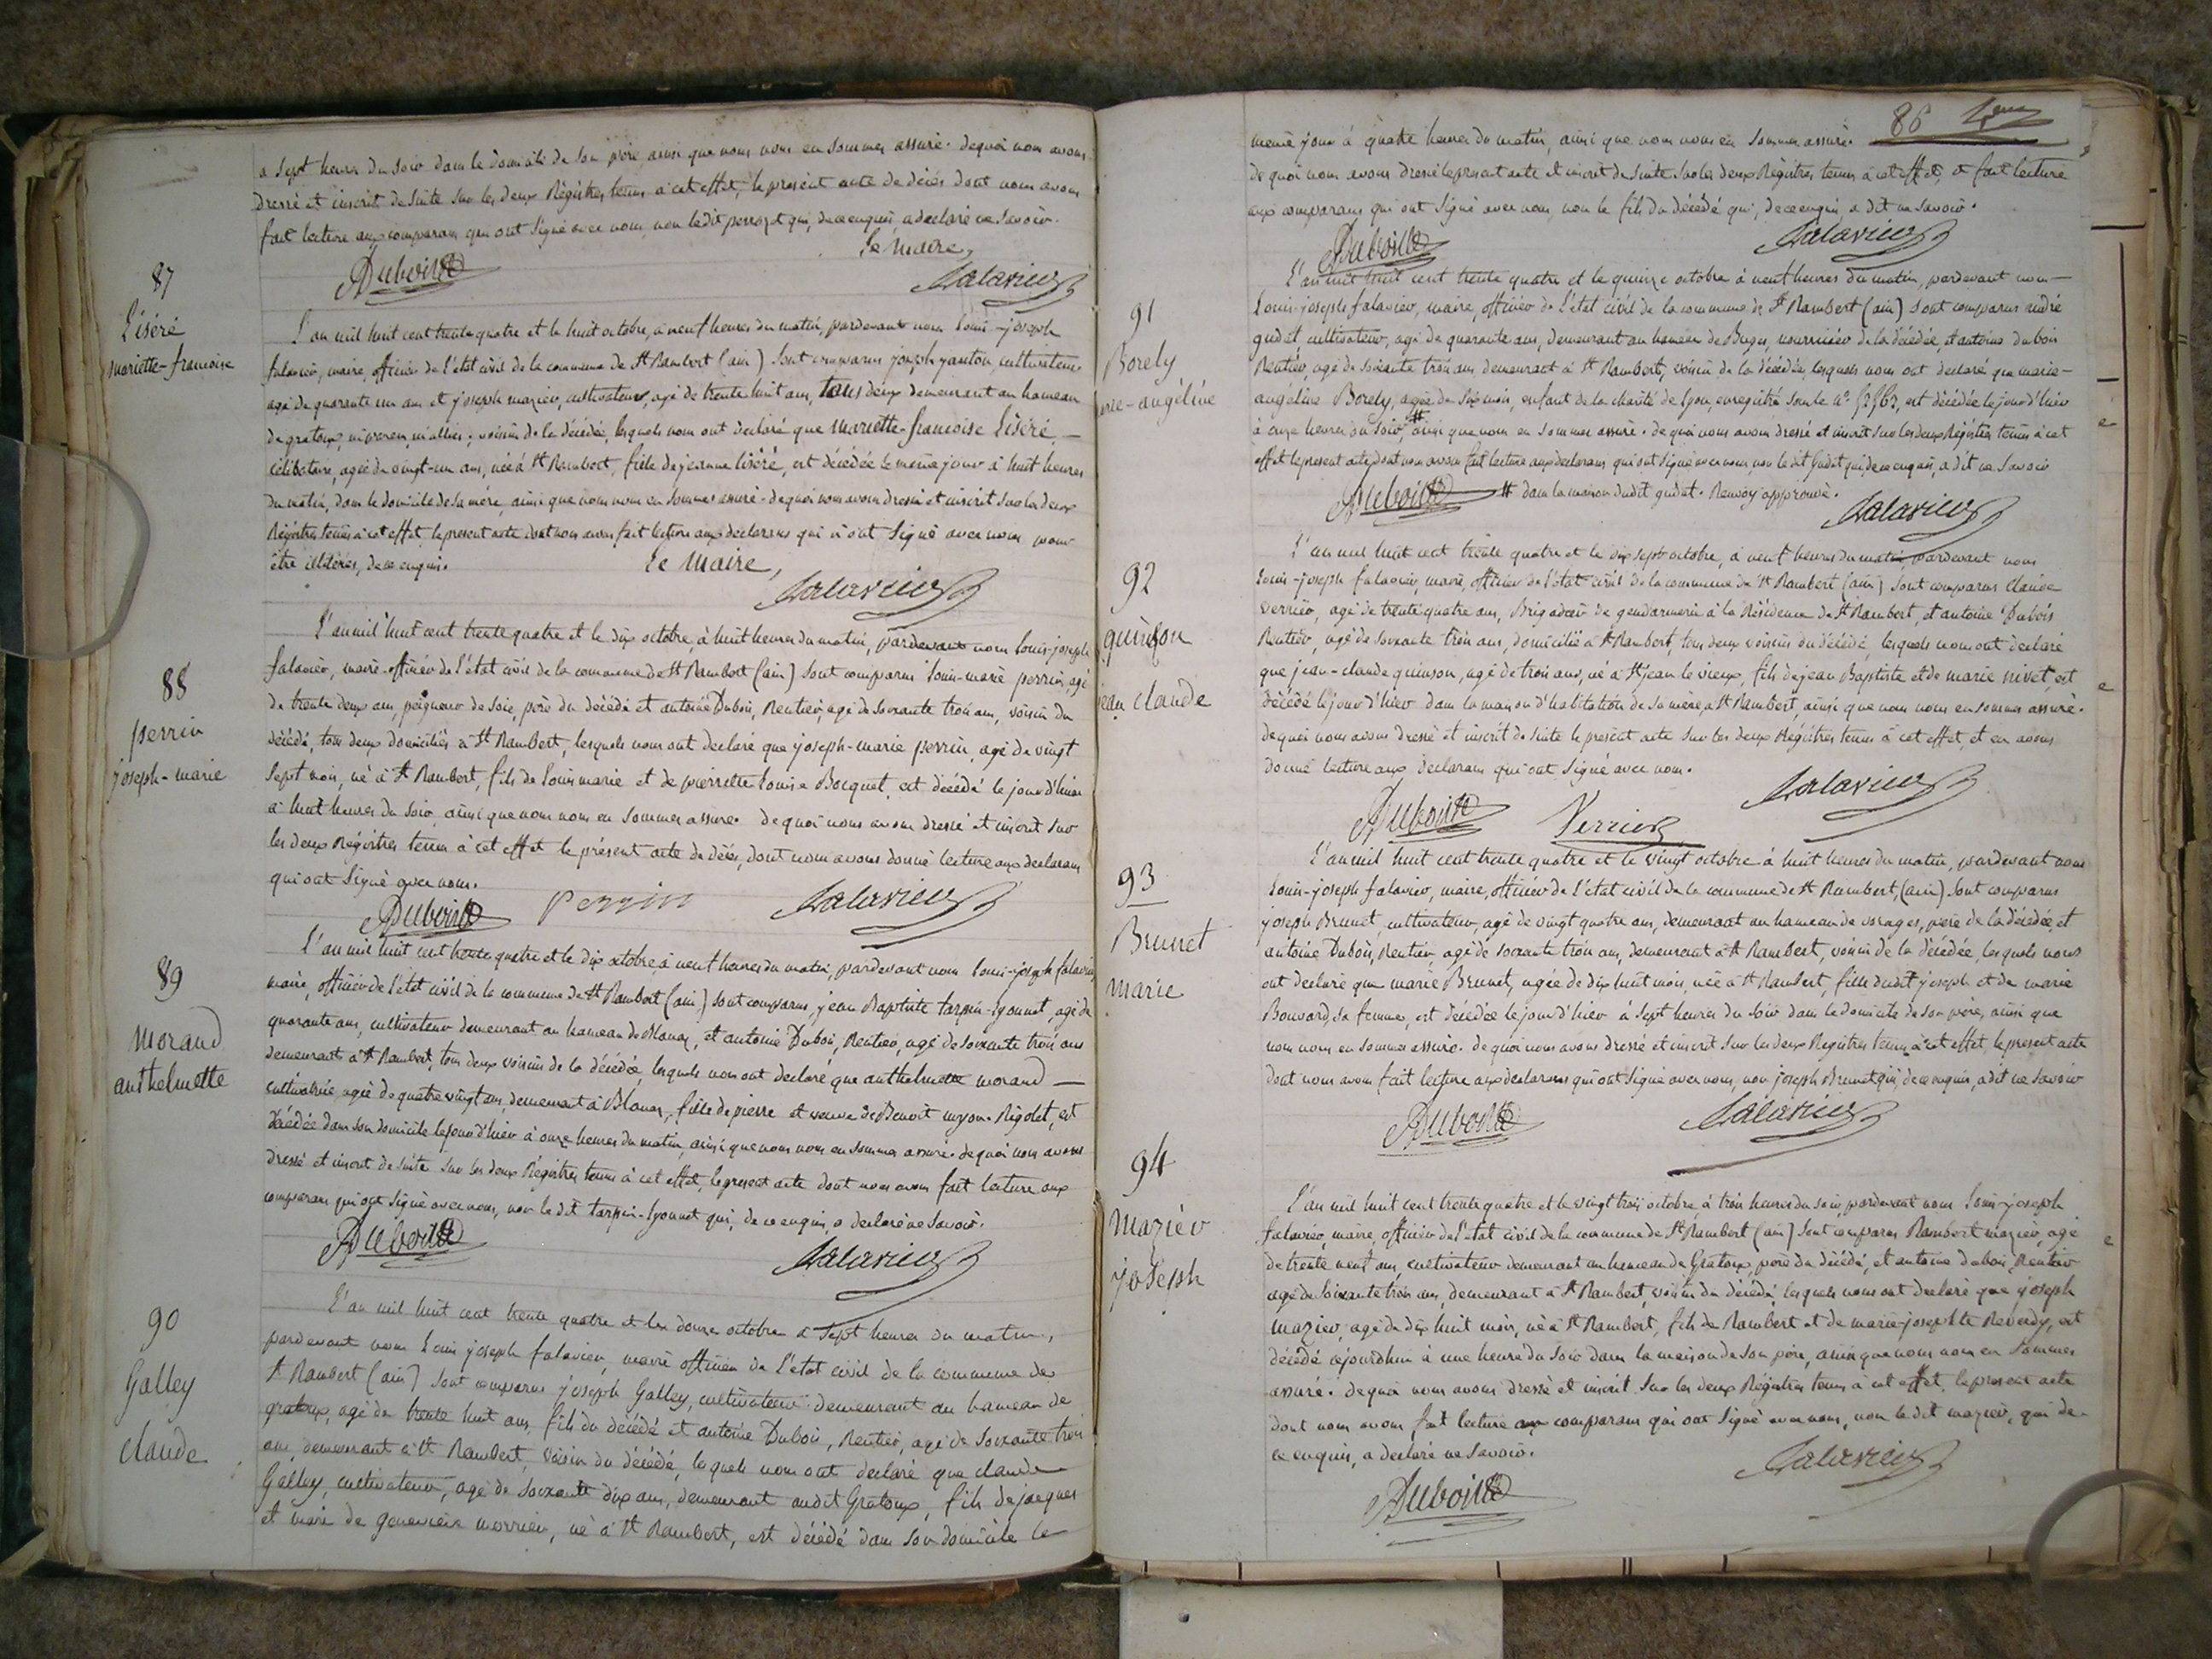 a sept heures du soir dans le domicile de son père ainsi que nous nous en sommes assuré. dequoi nous avons
dressé et inscrit de suite sur les deux Régistres tenus à cet effet, le présent acte de décès dont nous avons
fait lecture aux comparans qui ont signé avec nous, non ledit qui, de ce enquis, a declaré ne savoir.
Le Maire,
ADubois
falavier
87
Liséré
mariette-francoise
L'an mil huit cent trente quatre et le huit octobre, à neuf heures du matin, pardevant nous Louis-joseph
falavier, maire, officier de l'état civil de la commune de St Rambert (ain) Sont comparus joseph janton cultivateur
agé de quarante un ans et joseph mazier, cultivateur, agé de trente huit ans, tous deux demeurant au hameau
de gratoux, ni parens, ni alliés, voisins de la décédée, lesquels nous ont declaré que Mariette-francoise Liséré,
célibataire, agée de vingt-un ans, née à St Rambert, fille de jeanne liséré, est décédée le même jour à huit heures
du matin, dans le domicile de sa mère, ainsi que nous nous en sommes assuré. dequoi nous avons dressé et inscrit sur les deux
Régistres tenus à cet effet le present acte dont nous avons fait lecture aux declarans qui n'ont signé avec nous pour
être illitérés, de ce enquis.
Le Maire,
falavier
88
perrin
joseph-marie
L'an mil huit cent trente quatre et le dix octobre, à huit heures du matin, pardevant nous Louis-joseph
falavier, maire-officier de l'état civil de la commune de St Rambert (ain) Sont comparus Louis-marie perrin, agé
de trente deux ans, peigneur de soie, père du décédé et antoine Dubois, Rentier, agé de soixante trois ans, voisin du
décédé, tous deux domiciliés à St Rambert, lesquels nous ont declaré que joseph-marie perrin, agé de vingt
sept mois, né à St Rambert, fils de Louis marie et de pierrette Louise Bocquet, est décédé le jour d'hier
à huit heures du soir, ainsi que nous nous en sommes assuré. de quoi nous avons dressé et inscrit sur
les deux Régistres tenus à cet effet le présent acte de décès, dont nous avons donné lecture aux declarans
qui ont signé avec nous.
ADubois
Perrin
falavier
89
morand
anthelmette
L'an mil huit cent trente quatre et le dix octobre, à neuf heures du matin, pardevant nous Louis-joseph falavier
maire, officier de l'état civil de la commune de St Rambert (ain) sont comparus, jean Baptiste tarpin-lyonnet, agé de
quarante ans, cultivateur demeurant au hameau de Blanaz, et antoine Dubois, Rentier, agé de soixante trois ans
demeurant à St Rambert, tous deux voisins de la décédée, lesquels nous ont declaré que anthelmette morand
cultivatrice, agée de quatre vingt ans, demeurant à Blanaz, fille de pierre et veuve de Benoit Rigolet, est
décédée dans son domicile le jour d'hier à onze heures du matin, ainsi que nous nous en sommes assuré. de quoi nous avons
dressé et inscrit de suite sur les deux Régistres tenus à cet effet, le present acte dont nous avons fait lecture aux
comparans qui ont signé avec nous, non le dit tarpin-lyonnet qui, de ce enquis a declaré ne savoir.
ADubois
falavier
90
Galley
claude
L'an mil huit cent trente quatre et le douze octobre à sept heures du matin,
pardevant nous Louis joseph falavier, maire officier de l'état civil de la commune de
St Rambert (ain) sont comparus joseph Galley, cultivateur demeurant au hameau de
gratoux, agé de trente huit ans, fils du décédé et antoine Dubois, Rentier, agé de soixante trois
ans, demeurant à St Rambert, voisin du décédé, lesquels nous ont declaré que claude
Galley, cultivateur, agé de soixante dix ans, demeurant audit Gratoux, fils de jacques
et mari de genevieve morrier, né à St Rambert, est décédé dans son domicile le
86
même jour à quatre heures du matin, ainsi que nous nous en sommes assuré.
de quoi nous avons dressé le present acte et inscrit de suite sur les deux Régistres tenus à cet effet, et fait lecture
aux comparans qui ont signé avec nous, non le fils du décédé qui, de ce enquis, a dit ne savoir.
ADubois
falavier
91
Borely
angéline
L'an mil huit cent trente quatre et le quinze octobre à neuf heures du matin, pardevant nous
Louis-joseph falavier, maire, officier de l'état civil de la commune de St Rambert (ain) sont comparus andré
gudet, cultivateur, agé de quarante ans, demeurant au hameau de Buges, nourricier de la décédée, et antoine dubois
Rentier, agé de soixante trois ans demeurant à St Rambert, voisin de la décédée, lesquels nous ont declaré que marie-
angéline Borely, agée de six mois, enfant de la charité de Lyon, enregistré sous le n°, est décédée le jour d'hier
à onze heures du soir, # ainsi que nous en sommes assuré. de quoi nous avons dressé et inscrit sur les deux Régistres tenus à cet
effet le present acte, dont nous avons fait lecture aux declarans qui ont signé avec nous, non le dit Gudet qui de ce enquis, a dit ne savoir
ADubois
# dans la maison dudit gudet. Renvoy approuvé.
falavier
92
quinson
jean claude
L'an mil huit cent trente quatre et le dix sept octobre, à neuf heures du matin pardevant nous
Louis-joseph falavier, maire, officier de l'état-civil de la commune de St Rambert (ain) sont comparus claude
verrier, agé de trente quatre ans, Brigadier de gendarmerie à la Résidence de St Rambert, et antoine Dubois
Rentier, agé de soixante trois ans, domicilié à St Rambert, tous deux voisins du décédé, lesquels nous ont declaré
que jean-claude quinson, agé de trois ans, né à St jean le vieux, fils de jean Baptiste et de marie nivet, est
décédé le jour d'hier dans la maison d'habitation de sa mère, à St Rambert ainsi que nous nous en sommes assuré.
de quoi nous avons dressé et inscrit de suite le présent acte sur les deux Régistres tenus à cet effet, et en avons
donné lecture aux declarans qui ont signé avec nous.
ADubois
Verrier
falavier
93
Brunet
marie
L'an mil huit cent trente quatre et le vingt octobre à huit heures du matin, pardevant nous
Louis-joseph falavier, maire, officier de l'état civil de la commune de St Rambert, (ain) Sont comparus
joseph Brunet, cultivateur, agé de vingt quatre ans, demeurant au hameau de vorages, père de la décédée, et
antoine Dubois, Rentier, agé de soixante trois ans, demeurant à St Rambert, voisin de la décédée, lesquels nous
ont declaré que marie Brunet, agée de dix huit mois, née à St Rambert, fille dudit joseph et de marie
Bouvard, sa femme, est décédée le jour d'hier à sept heures du soir dans le domicile de son père, ainsi que
nous nous en sommes assuré. de quoi nous avons dressé et inscrit sur les deux Registres tenus à cet effet, le present acte
dont nous avons fait lecture aux declarans qui ont signé avec nous, non joseph Brunet qui, de ce enquis, a dit ne savoir
ADubois
falavier
94
Mazier
joseph
L'an mil huit cent trente quatre et le vingt trois octobre, à trois heures du soir pardevant nous Louis-joseph
falavier, maire, officier de l'état civil de la commune de St Rambert (ain) Sont comparus Rambert mazier, agé
de trente neuf ans, cultivateur demeurant au hameau de Gratoux, père du décédé, et antoine dubois, Rentier
agé de soixante trois ans, demeurant à St Rambert, voisin du décédé, lesquels nous ont declaré que joseph
Mazier, agé de dix huit mois, né à St Rambert, fils de Rambert et de marie-josephte Reverdy, est
décédé ce jourdhui à une heure du soir dans la maison de son père, ainsi que nous nous en sommes
assuré. de quoi nous avons dressé et inscrit sur les deux Régistres tenus à cet effet, le present acte
dont nous avons fait lecture aux comparans qui ont signé avec nous, non le dit mazier, qui de
ce enquis, a declaré ne savoir.
ADubois
falavier